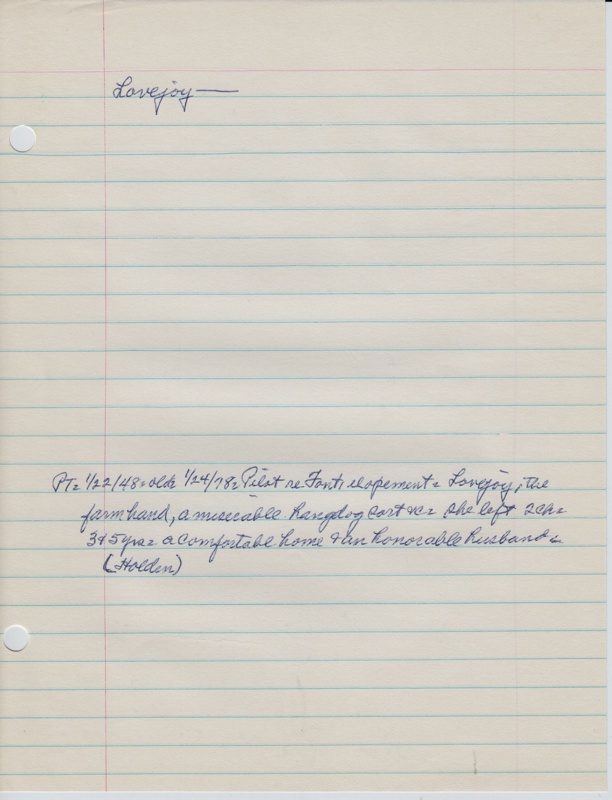 Lovejoy—
PT= 1/22/48= olde 1/24/78= Pilot re Fonti elopement = Lovejoy, the
farmhand, a miserable hangdog sort &c= she left 2 ch=
3 & 5 yrs= a comfortable home & an honorable husband=
(Holden)